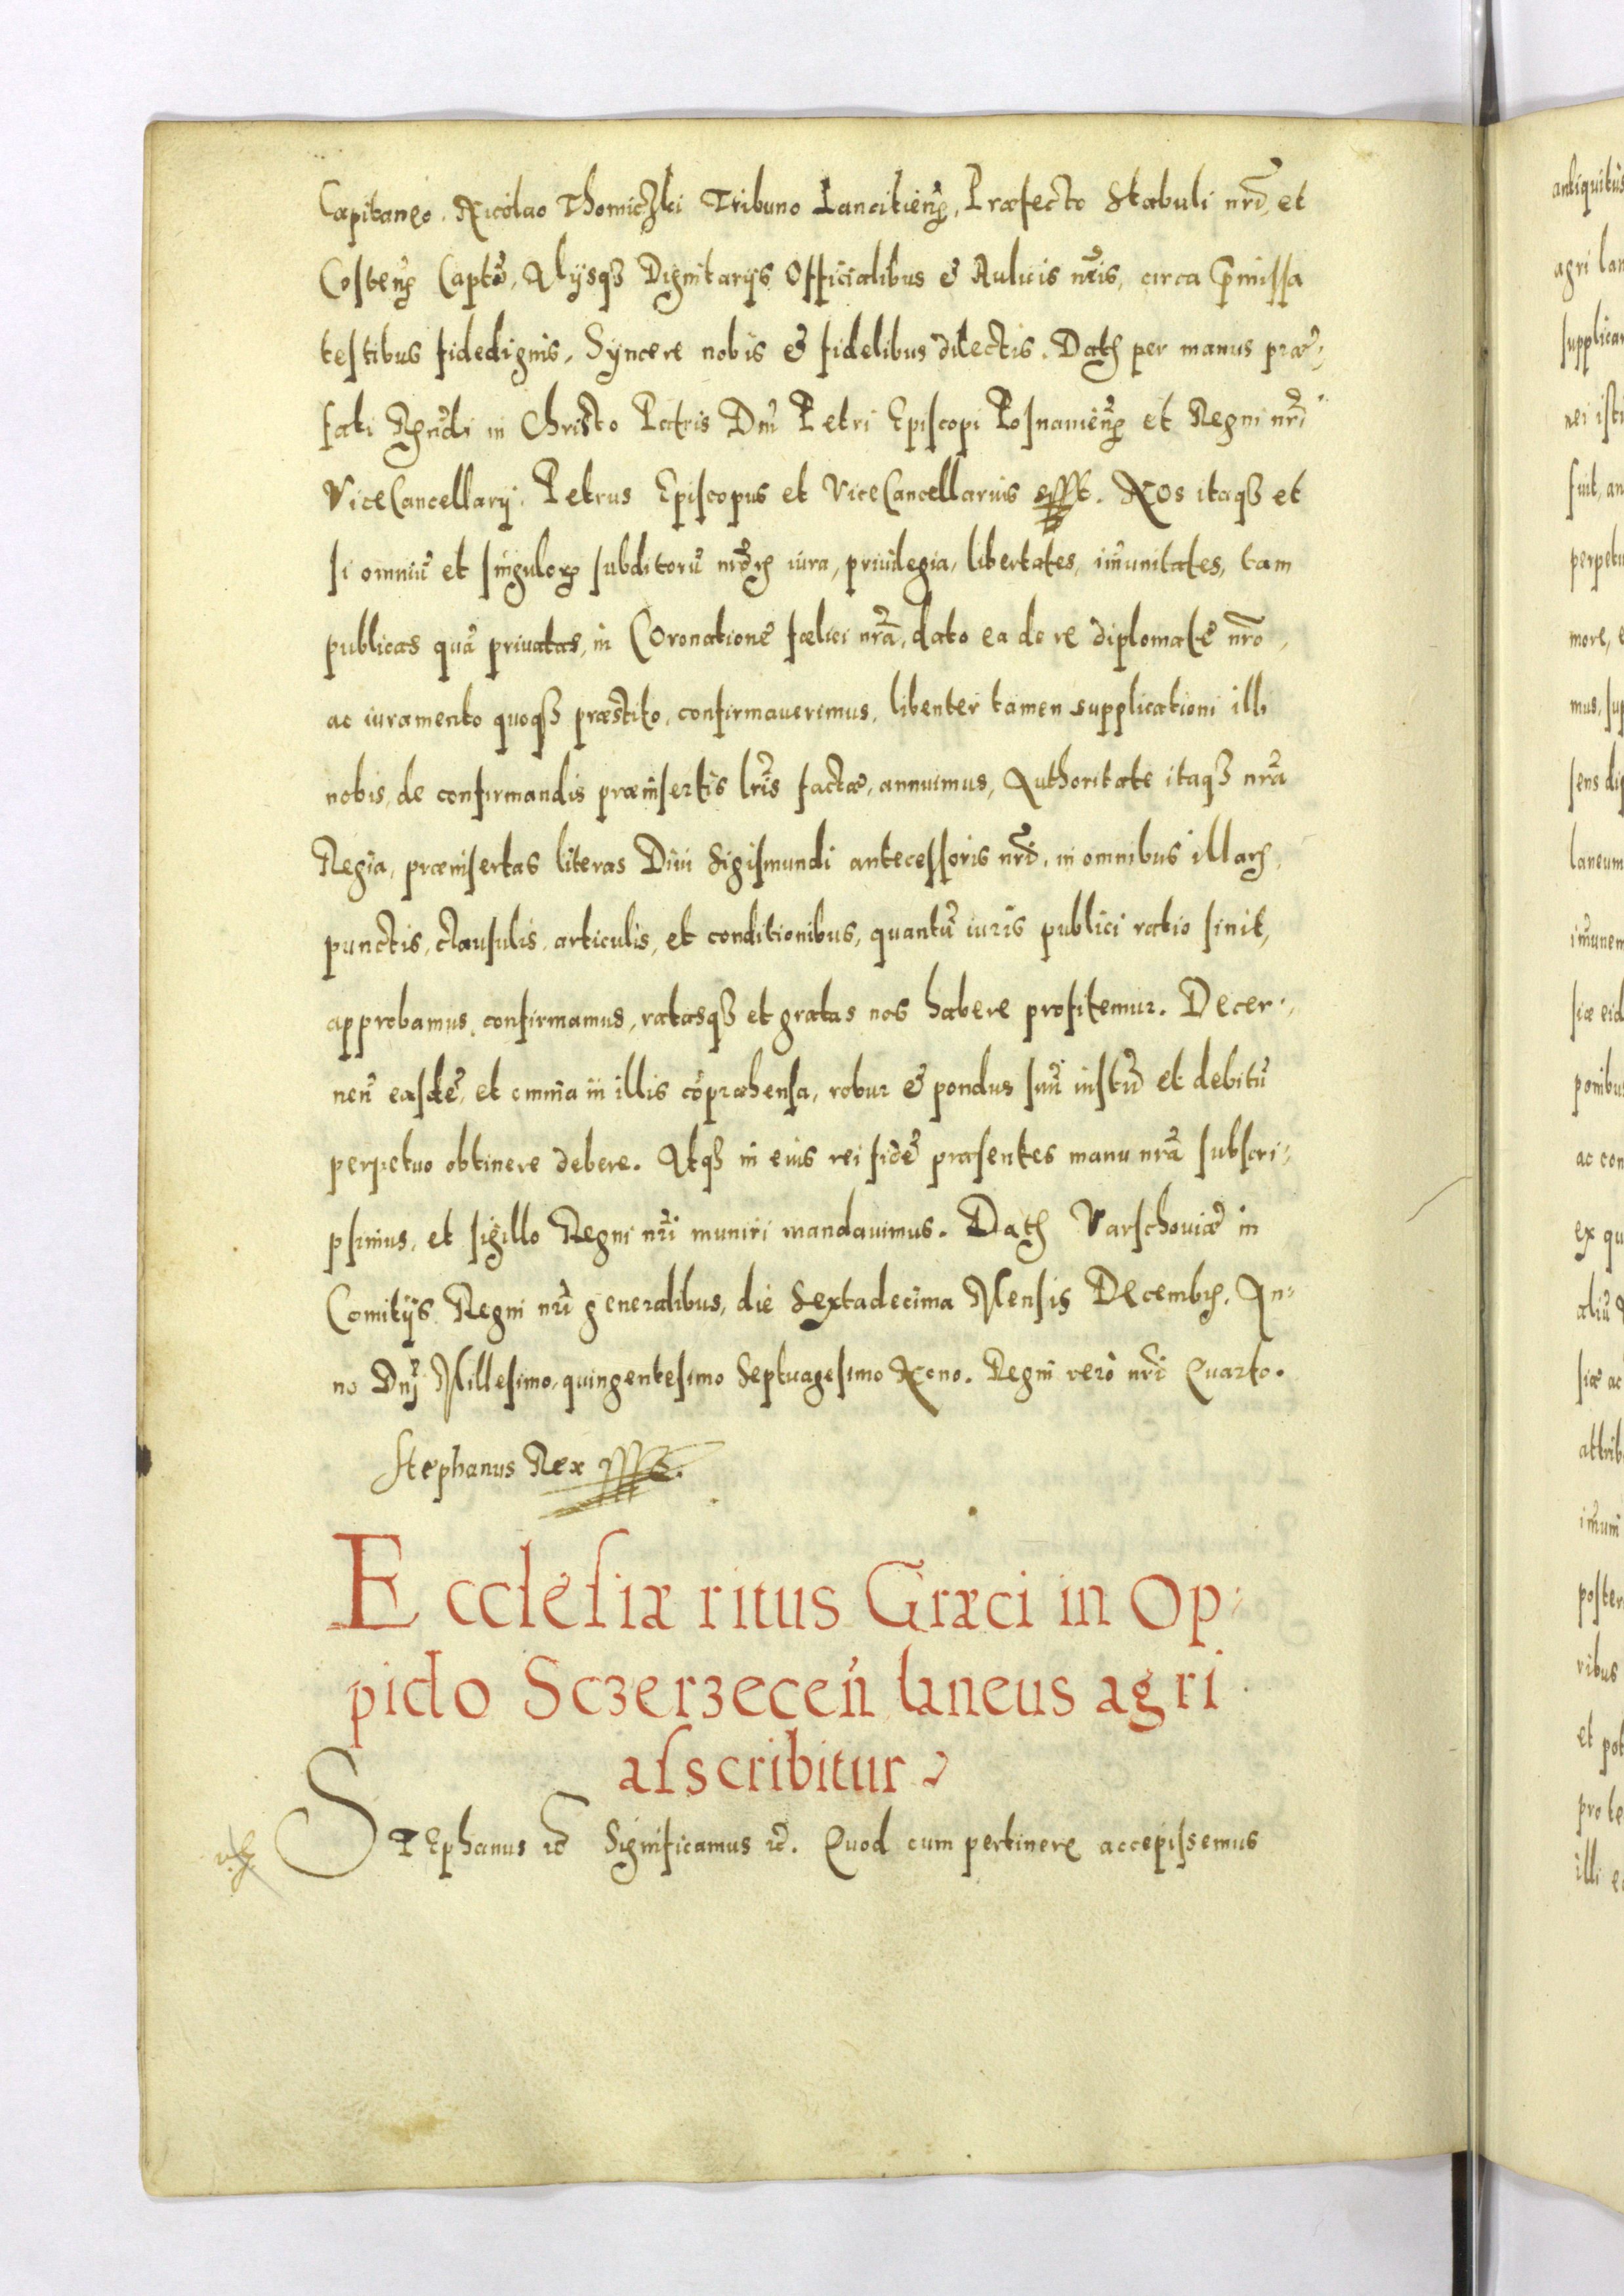 Capitaneo. Nicolao Thomiczki Tribuno Lancitien̄, Præfecto Stabuli nr̄i, et
Costen̄ Captō, Alijsqȝ Dignitarijs Officialibus & Aulicis nr̄is, circa p̄missa
testibus fidedignis, Syncere nobis & fidelibus dilectis. Datꝝ per manus præ-
fati Rn̄di in Christo Patris Dn̄i Petri Episcopi Posnanien̄ et Regni nr̄i
ViceCancellarij. Petrus Episcopus et ViceCancellarius sst. Nos itaqȝ et
si omniū et singuloꝝ subditorū nr̄oꝝ iura, priuilegia, libertates, im̄unitates, tam
publicas quā priuatas, in Coronationē fælici nr̄a, dato ea de re diplomatē nr̄o,
ac iuramento quoqȝ præstito, confirmauerimus, libenter tamen supplicationi illi
nobis, de confirmandis præinsertis lr̄is factæ, annuimus, Authoritate itaqȝ nr̄a
Regia, præinsertas literas Diui Sigismundi antecessoris nr̄i, in omnibus illarꝝ,
punctis, clausulis, articulis, et conditionibus, quantū iuris publici ratio sinit,
approbamus, confirmamus, ratasqȝ et gratas nos habere profitemur. Decer-
nen̄ easdē, et omnia in illis cōpræhensa, robur & pondus suū iustū et debitū
perpetuo obtinere debere. Atqȝ in eius rei fidē præsentes manu nr̄a subscri-
psimus, et sigillo Regni nr̄i muniri mandauimus. Datꝝ Varschouiæ in
Comitijs Regni nr̄i generalibus, die Sextadecima Mensis Decembrꝭ, An-
no Dn̄j Millesimo, quingentesimo Septuagesimo Nono. Regni vero nr̄i Quarto.
Stephanus Rex sst.
Ecclesiæ ritus Græci in Op-
pido Sczerzecen̄ laneus agri
asscribitur
STEphanus ꝛc̄ Significamus ꝛc̄. Quod cum pertinere accepissemus